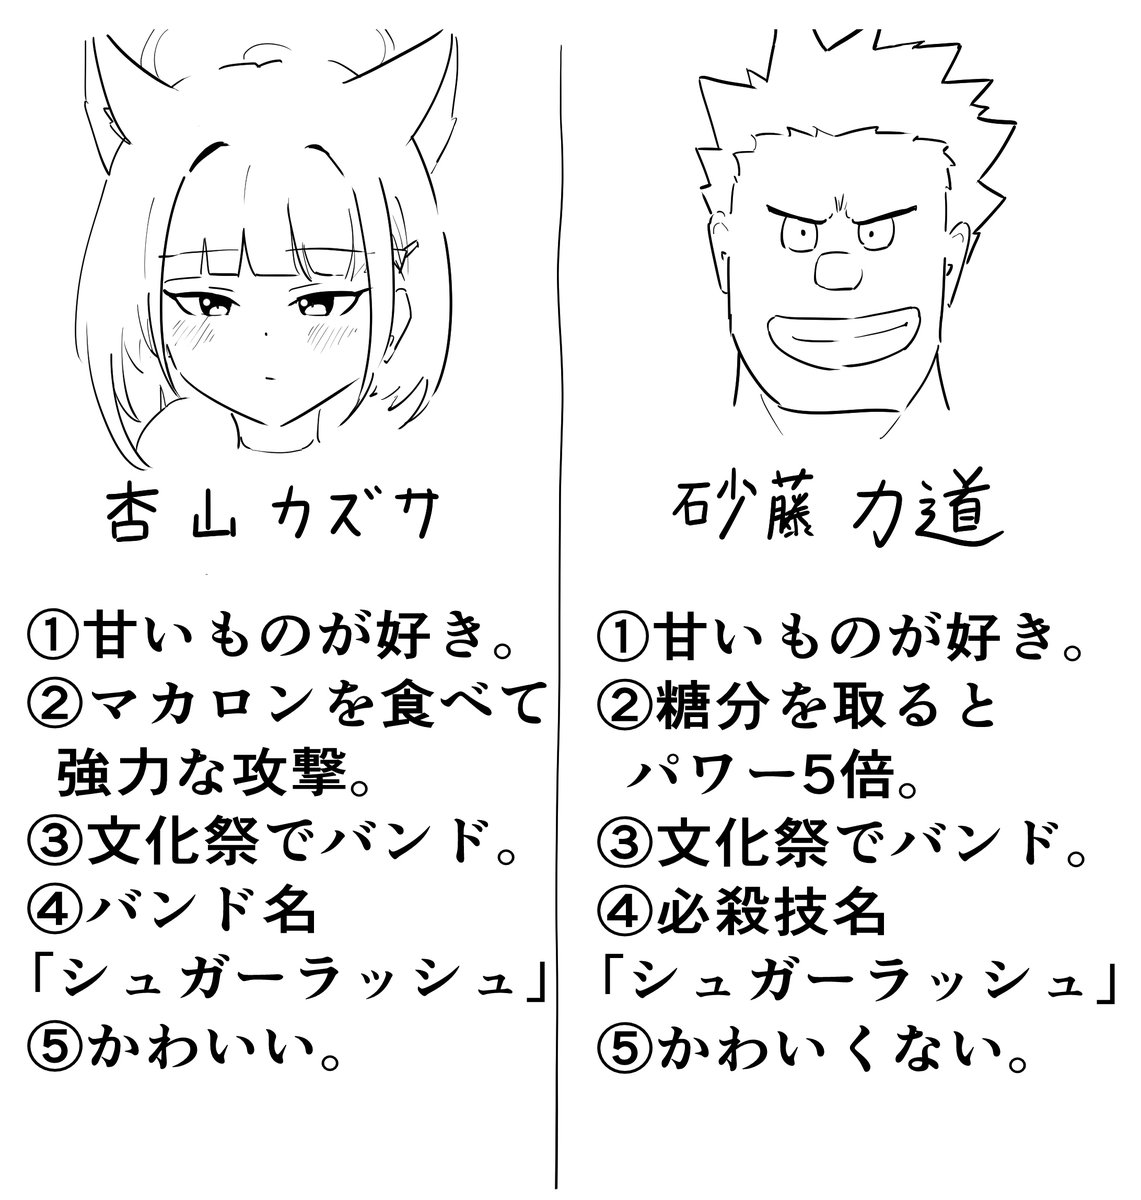 杏山カズサ
①甘いものが好き。
②マカロンを食べて
強力な攻撃。
③文化祭でバンド。
④バンド名
「シュガーラッシュ」
⑤かわいい。
砂藤力道
①甘いものが好き。
②糖分を取ると
パワー5倍。
③文化祭でバンド。
④必殺技名
「シュガーラッシュ」
⑤かわいくない。